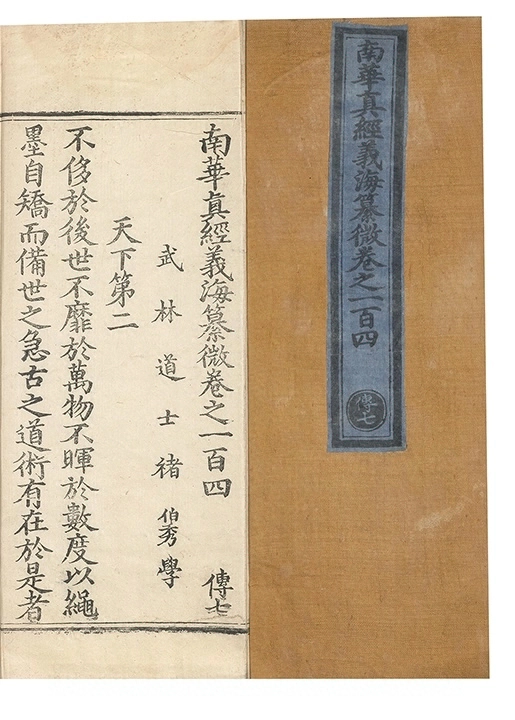 南華真經義海纂微卷之一百四
傳七
南華真經義海纂微卷之一百四 傳七
武林道士褚伯秀學
天下第二
不侈於後世不靡於萬物不暉於數度以繩
墨自矯而備世之急古之道術有在於是者